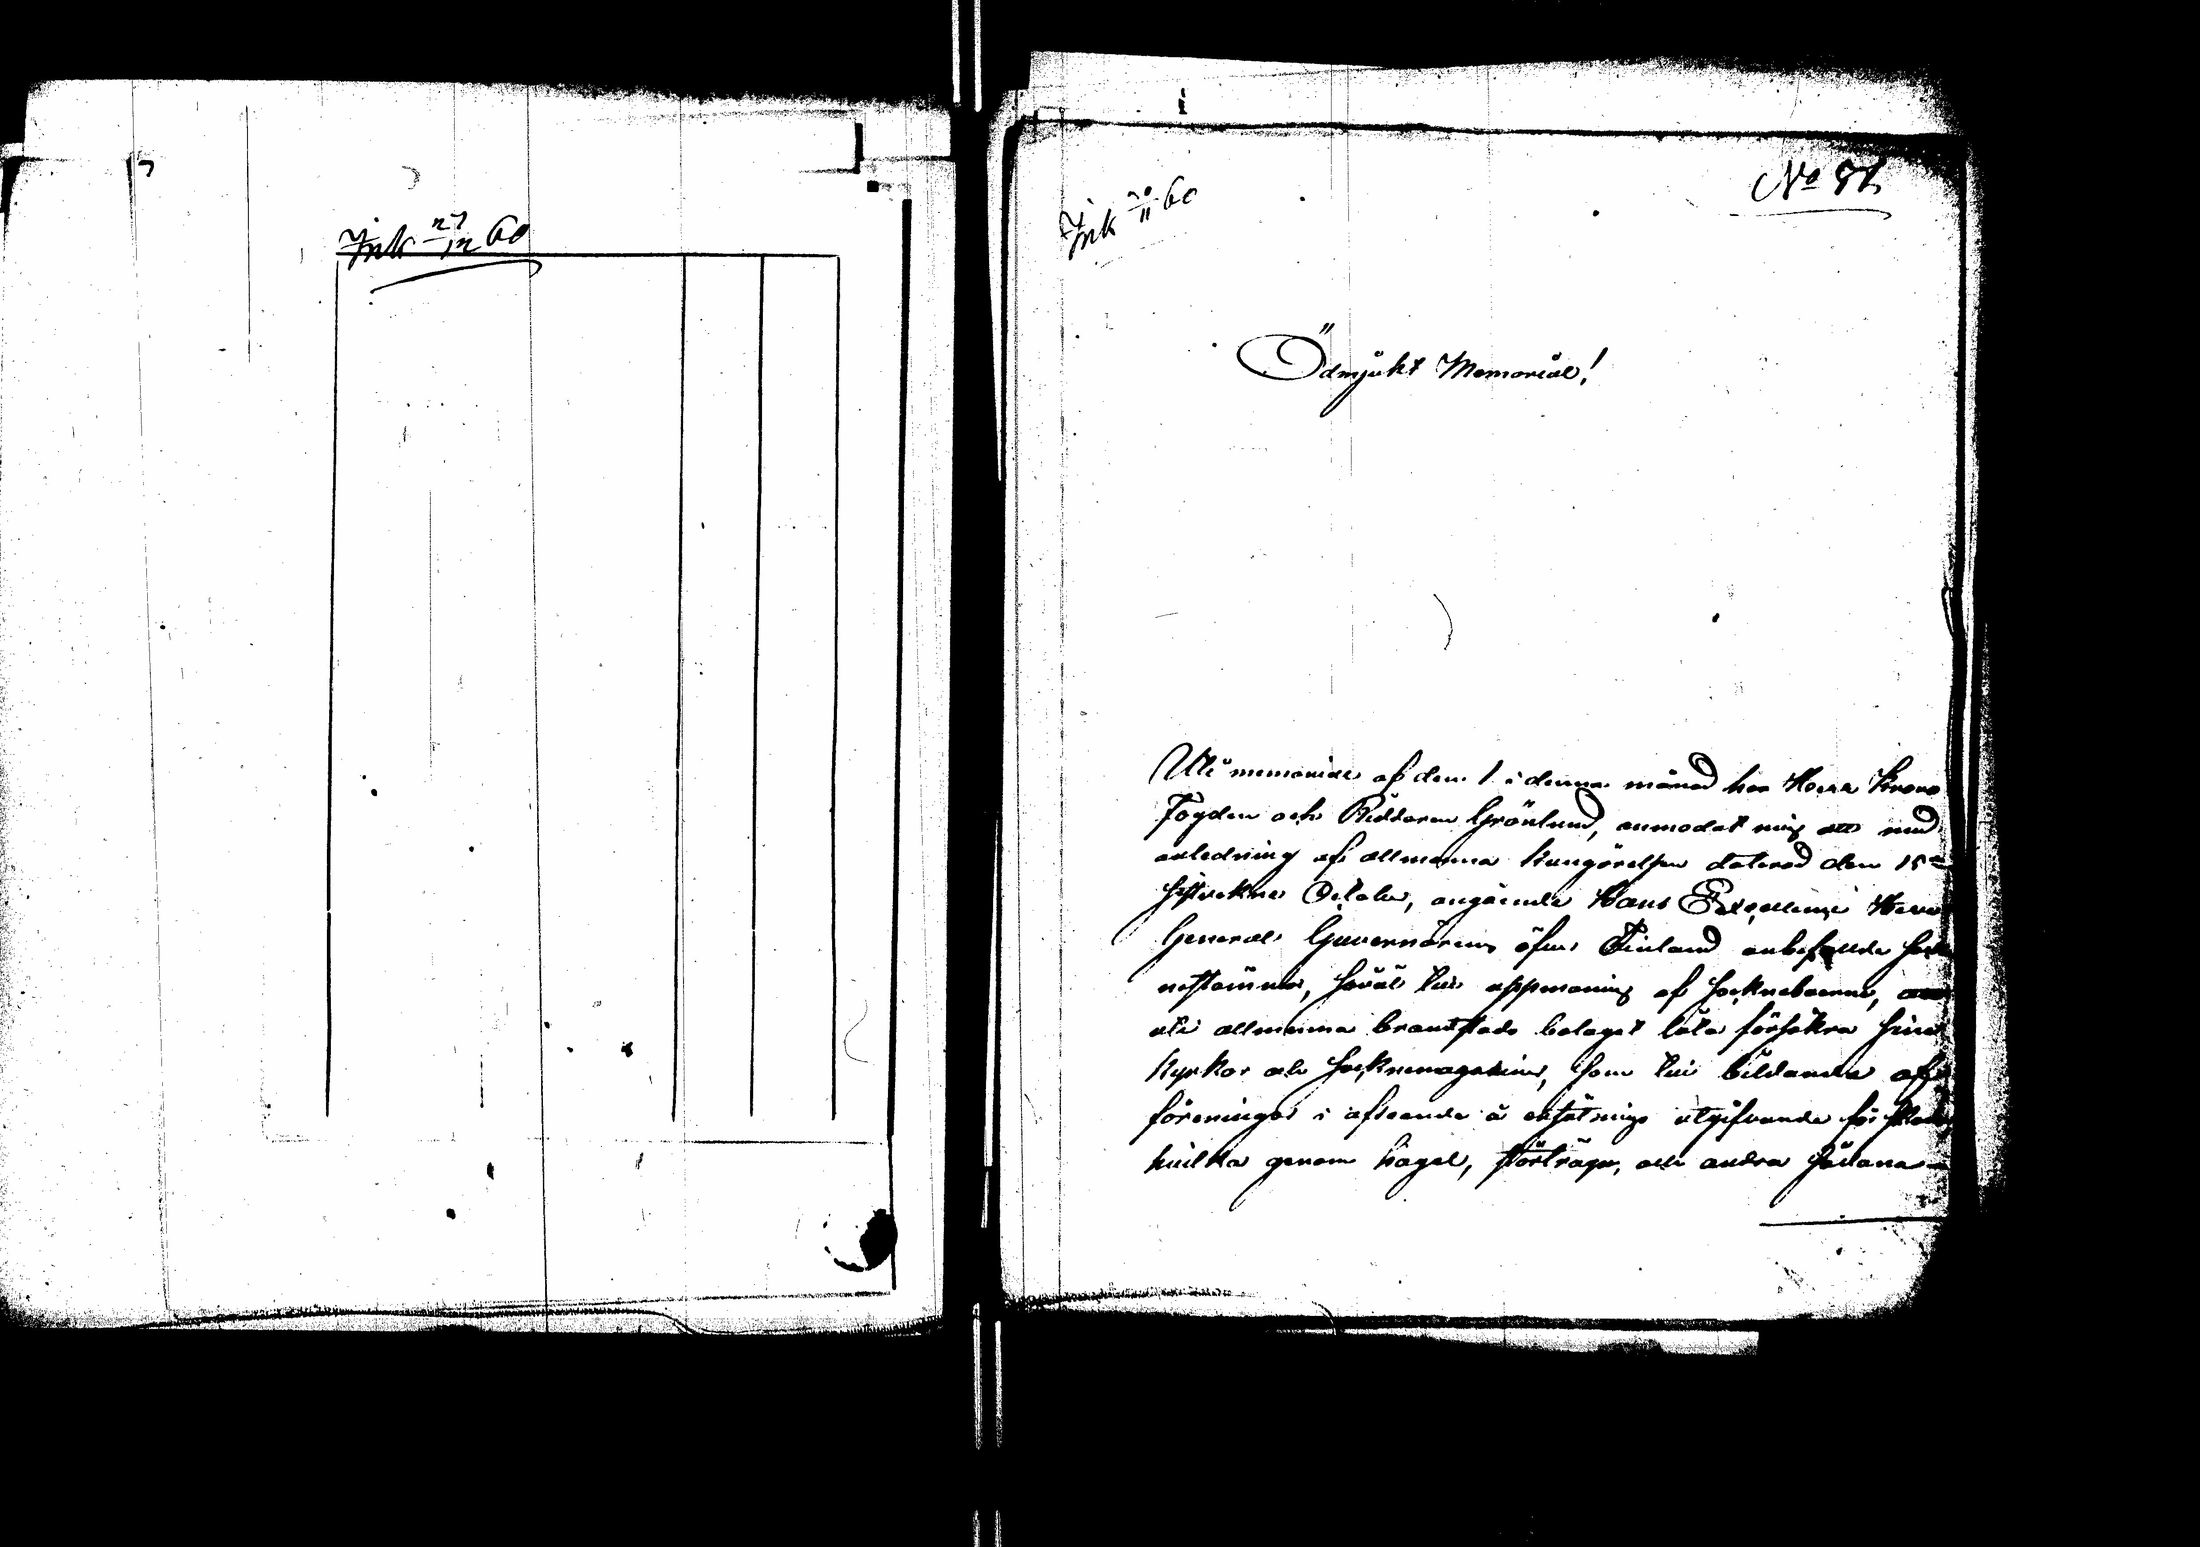 Ink 27/12 60
No 82
Ink 20/11 60
Ödmjukt Memorial!
Uti memorial af den 1 i denna månad har Herr Krono
Fogden och Riddaren Grönlund, anmodat mig att med
anledning af allmänna kungörelsen daterad den 15de
sistvekne October, angående Hans Excellence Herr
General Guvernörens öfver Finland anbefallde sock
nestämmor, såväl till uppmaning af sockneboerne,
uti allmänna brandstods bolaget låta försäkra sina
kyrkor och socknemagasiner, som till bildande af
föreningar i afseende å ersättnings utgifvande för skador,
hvilka genom hagel, störtregn, och andra sådana